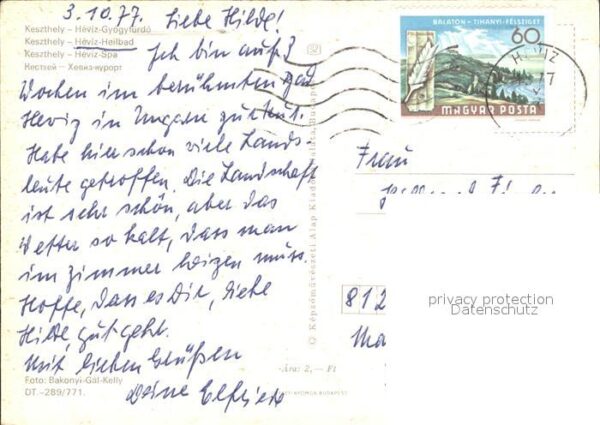 3.10.77. Liebe Hilde!
Keszthely – Hévíz-Gyógyfürdő
Keszthely – Hévíz-Heilbad
Keszthely – Hévíz-Spa
Кестхей – Хевиз-курорт
Ich bin auf 3
Wochen im berühmten Bad
Heviz in Ungarn zur Kur.
Habe hier schon viele Lands-
leute getroffen. Die Landschaft
ist sehr schön, aber das
Wetter so kalt, dass man
im Zimmer heizen muss.
Hoffe, dass es Dir, liebe
Hilde, gut geht.
Mit lieben Grüßen
Deine Elfriede
Foto: Bakonyi-Gál-Kelly
DT.-289/771.
Képzőművészeti Alap Kiadó
Budapest
Ára: 2,– Ft
BALATON - TIHANYI-FÉLSZIGET
60f
MAGYAR POSTA
HÉVÍZ
Frau
812
privacy protection
Datenschutz